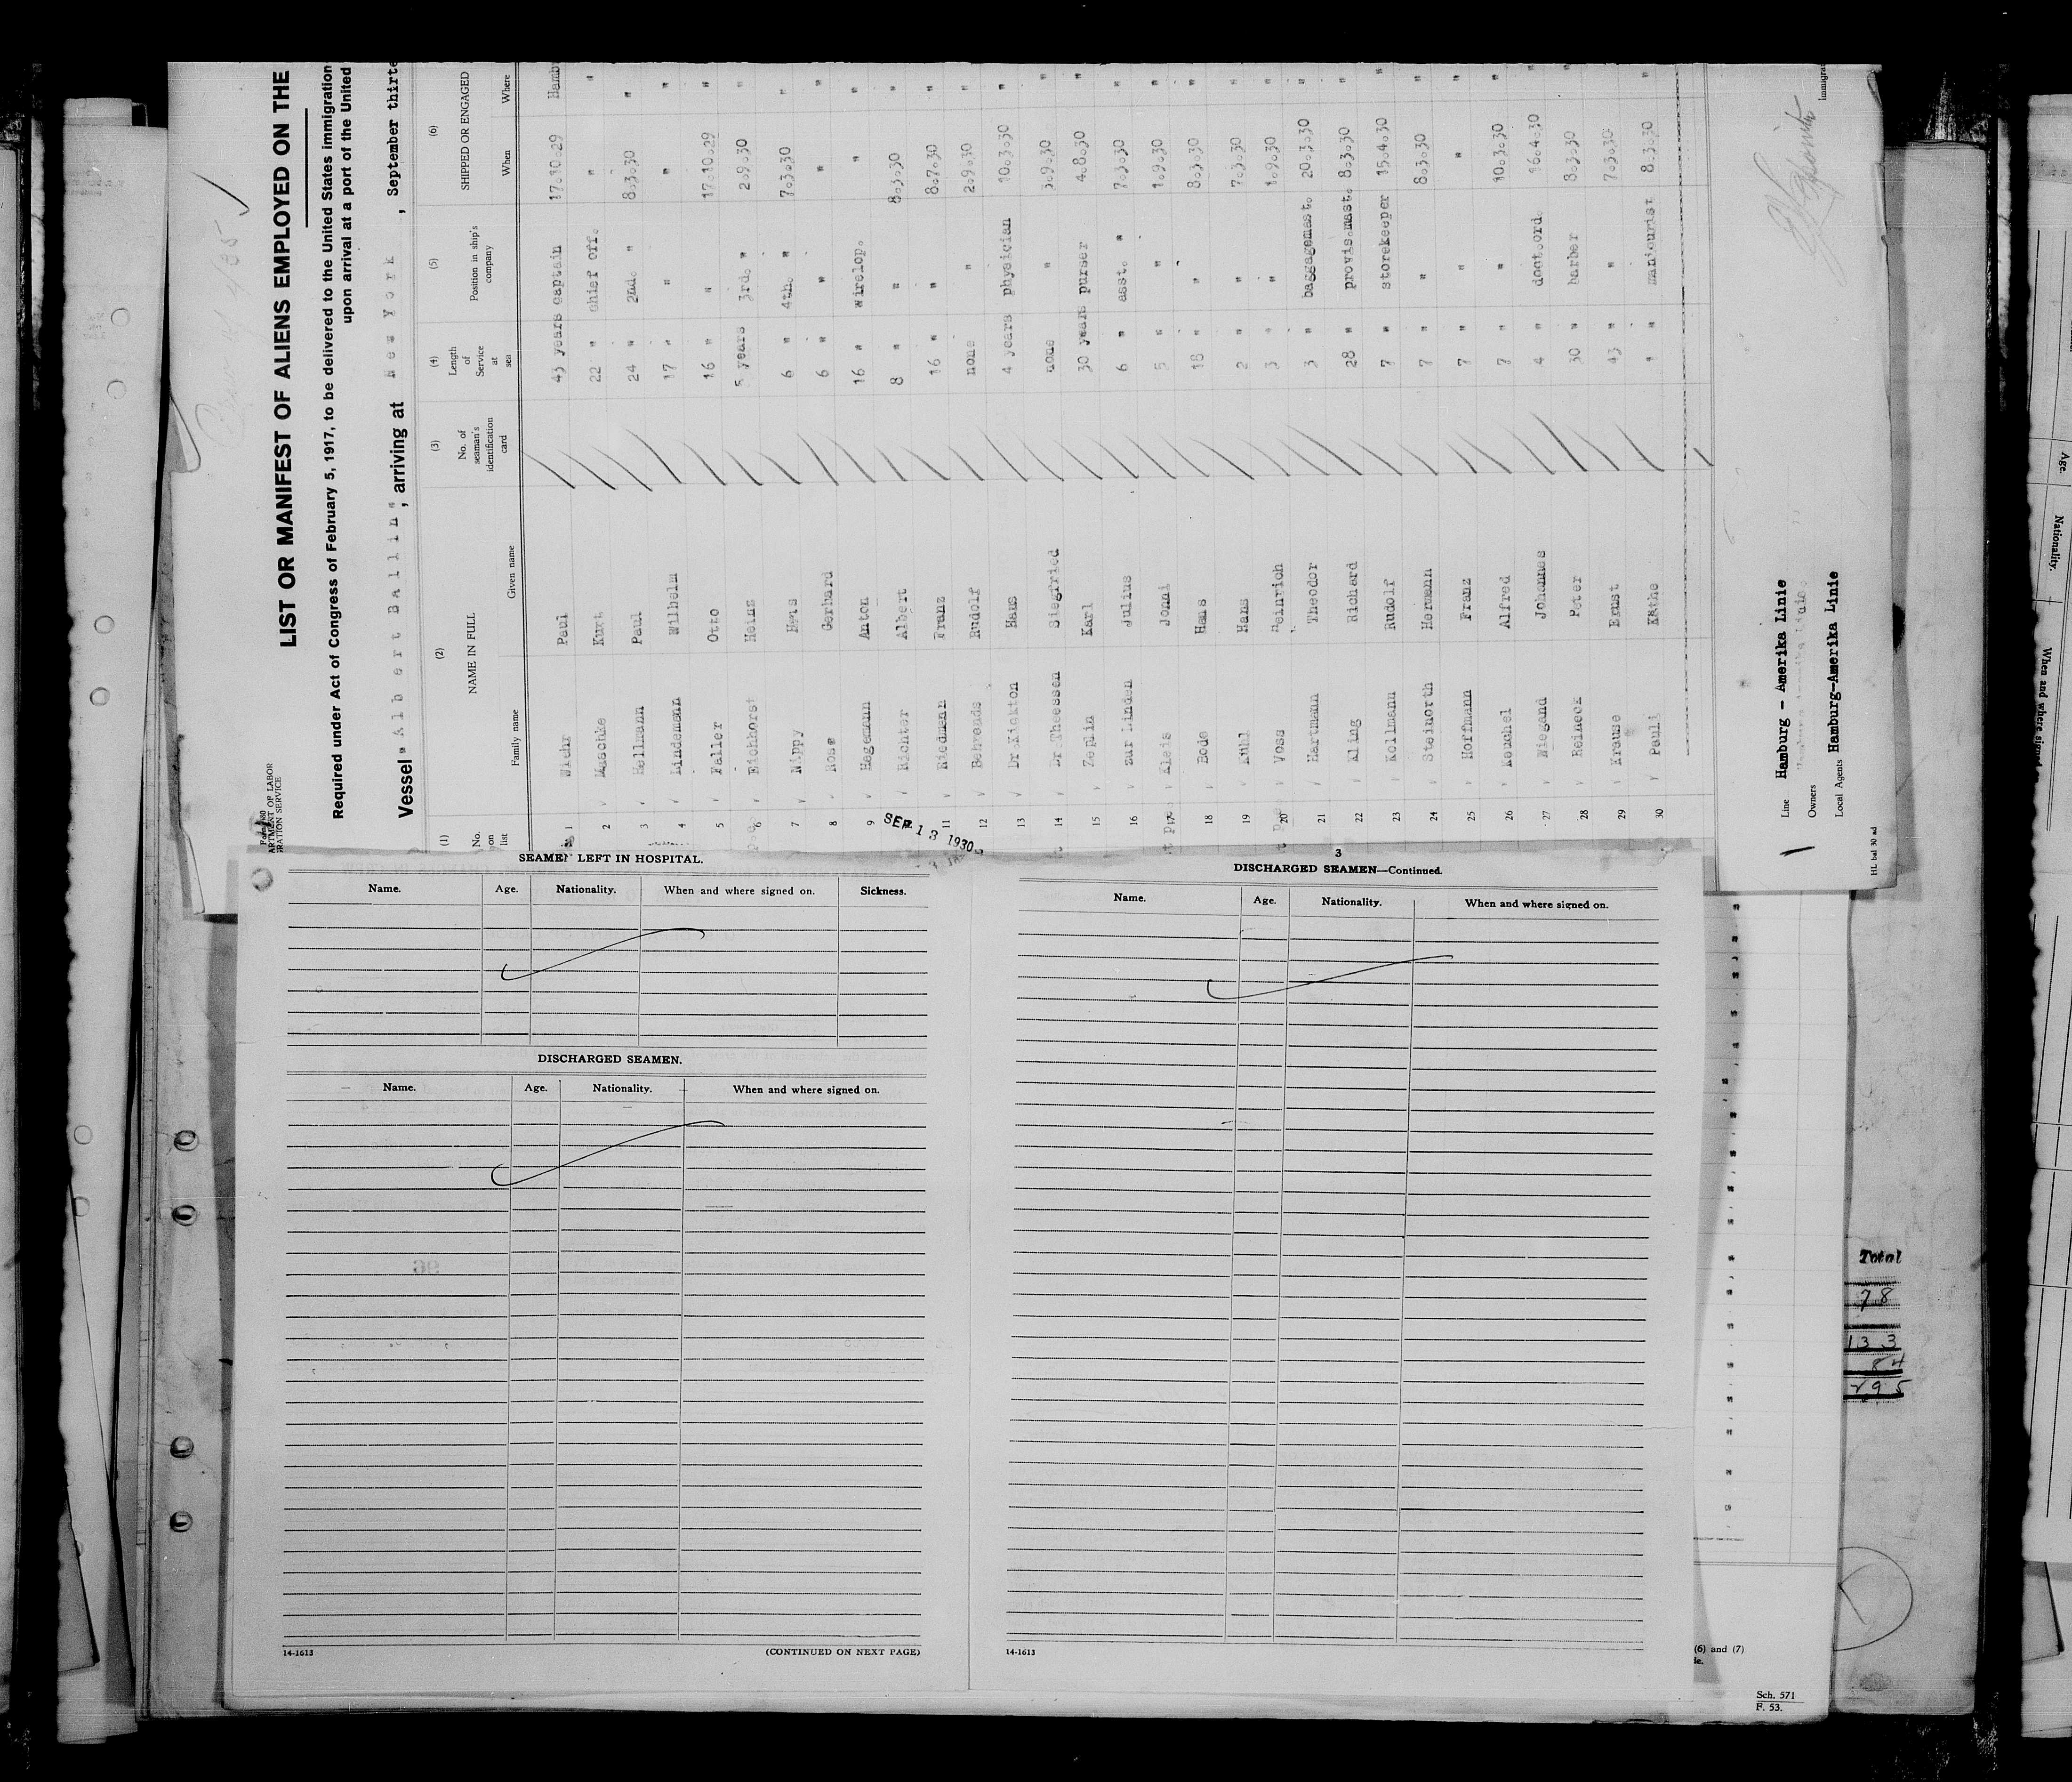 Form 680
LIST OR MANIFEST OF ALIENS EMPLOYED ON THE
Required under Act of Congress of February 5, 1917, to be delivered to the United States immigration
upon arrival at a port of the United
Vessel Albert Ballin, arriving at New York, September thirte
(1) (2) (3) (4) (5) (6)
No. on list NAME IN FULL No. of seaman's identification card Length of Service at sea Position in ship's company SHIPPED OR ENGAGED
Family name Given name When Where
1 Wiehr Paul 43 years captain 17.10.29 Hamb
2 Maschke Kurt 22 " chief off. " "
3 Hellmann Paul 24 " 2nd. " 8.3.30 "
4 Lindemann Wilhelm 17 " " " "
5 Faller Otto 16 " " 17.10.29 "
6 Eichhorst Heinz 5 years 3rd. " 2.9.30 "
7 Nippy Hans 6 " 4th. " 7.3.30 "
8 Rose Gerhard 6 " " " "
9 Hagemann Anton 16 " wirelop. " "
10 Richter Albert 8 " " 8.3.30 "
11 Riedmann Franz 16 " " 8.7.30 "
12 Behrends Rudolf none " 2.9.30 "
13 Dr. Kickton Hans 4 years physician 10.3.30 "
14 Dr. Theessen Siegfried none " 3.9.30 "
15 Zeplin Karl 30 years purser 4.8.30 "
16 zur Linden Julius 6 " asst. " 7.3.30 "
17 Kleis Jonni 5 " " 1.9.30 "
18 Bode Hans 18 " " 8.3.30 "
19 Kühl Hans 2 " " 7.3.30 "
20 Voss Heinrich 3 " " 1.9.30 "
21 Hartmann Theodor 3 " baggagemast. 20.3.30 "
22 Kling Richard 28 " provis.mast. 8.3.30 "
23 Kollmann Rudolf 7 " storekeeper 15.4.30 "
24 Steinorth Hermann 7 " " 8.3.30 "
25 Hoffmann Franz 7 " " " "
26 Keuchel Alfred 7 " " 10.3.30 "
27 Wiegand Johannes 4 " doct.ord. 16.4.30 "
28 Reineck Peter 30 " barber 8.3.30 "
29 Krause Ernst 43 " " 7.3.30 "
30 Pauli Käthe 1 " manicurist 8.3.30 "
SEP 13 1930
Line Hamburg - Amerika Linie
Owners
Local Agents Hamburg-Amerika Linie
Immigra
HL bal 30 ad
SEAMEN LEFT IN HOSPITAL.
Name. Age. Nationality. When and where signed on. Sickness.
DISCHARGED SEAMEN.
Name. Age. Nationality. When and where signed on.
14-1613 (CONTINUED ON NEXT PAGE)
3
DISCHARGED SEAMEN—Continued.
Name. Age. Nationality. When and where signed on.
14-1613
Total
78
133
84
295
(6) and (7)
Sch. 571
F. 53.
Age.
Nationality.
When and where signed